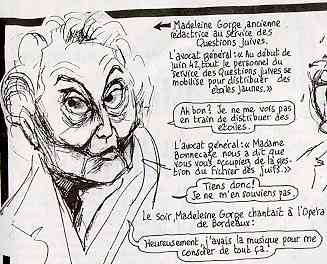 Madeleine Gorge, ancienne
rédactrice au service des
Questions Juives.
L'avocat général : « Au début de
juin 42, tout le personnel du
service des Questions juives se
mobilise pour distribuer des
étoiles jaunes. »
Ah bon ? Je ne me vois pas
en train de distribuer des
étoiles.
L'avocat général : « Madame
Bonnecaze nous a dit que
vous vous occupiez de la ges-
tion du fichier des juifs. »
Tiens donc !
Je ne m'en souviens pas
Le soir, Madeleine Gorge chantait à l'Opéra
de Bordeaux :
Heureusement, j'avais la musique pour me
consoler de tout ça.